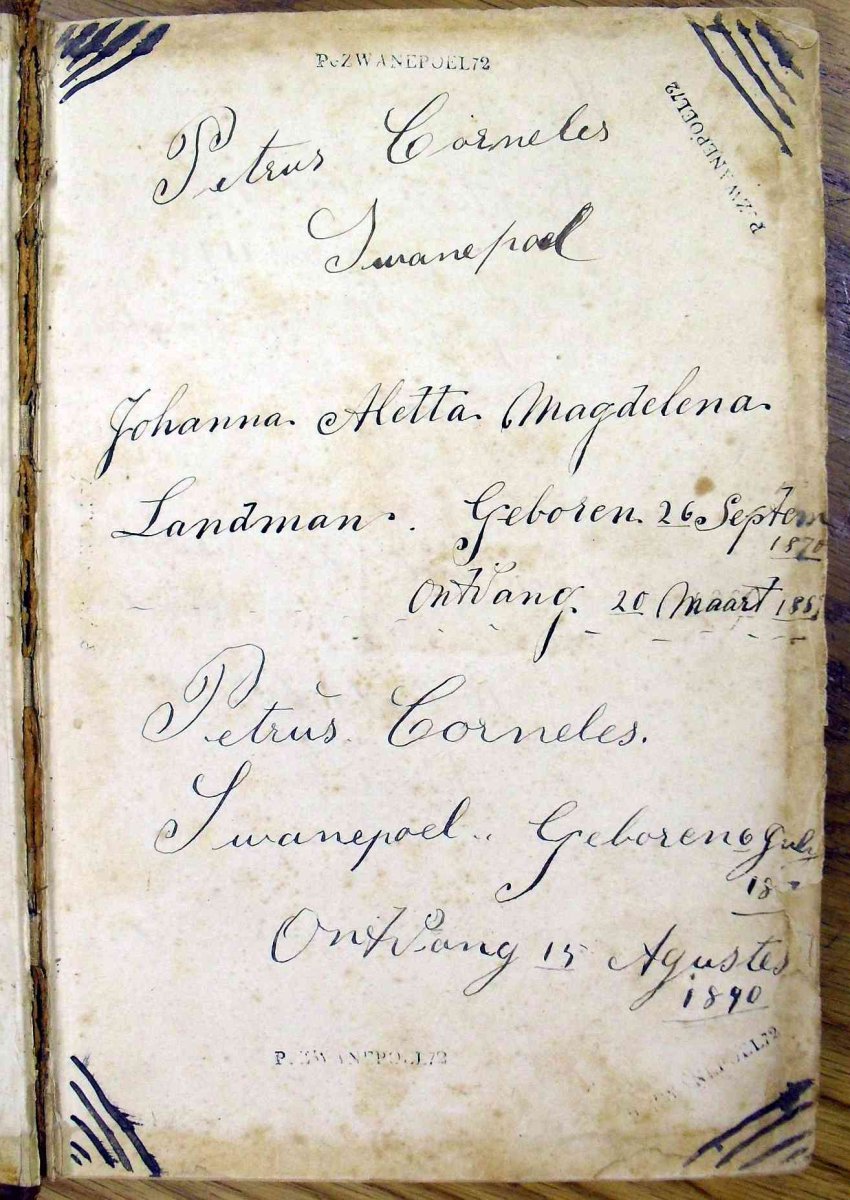 PcZWANEPOEL72
PcZWANEPOEL72
Petrus Corneles
Swanepoel
Johanna Aletta Magdelena
Landman. Geboren 26 Septem
1870
OntVang 20 Maart
Petrus Corneles.
Swanepoel.. Geboren 6
18
OntVang 15 Agustes
1890
PcZWANEPOEL72
PcZWANEPOEL72